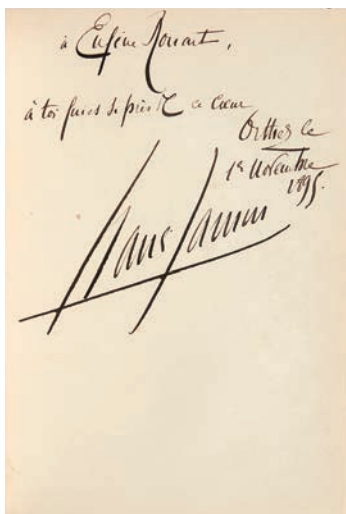 à Eugène Rouart,
à toi qui es si près de ce cœur
Orthez le
1er novembre
1895.
Francis Jammes